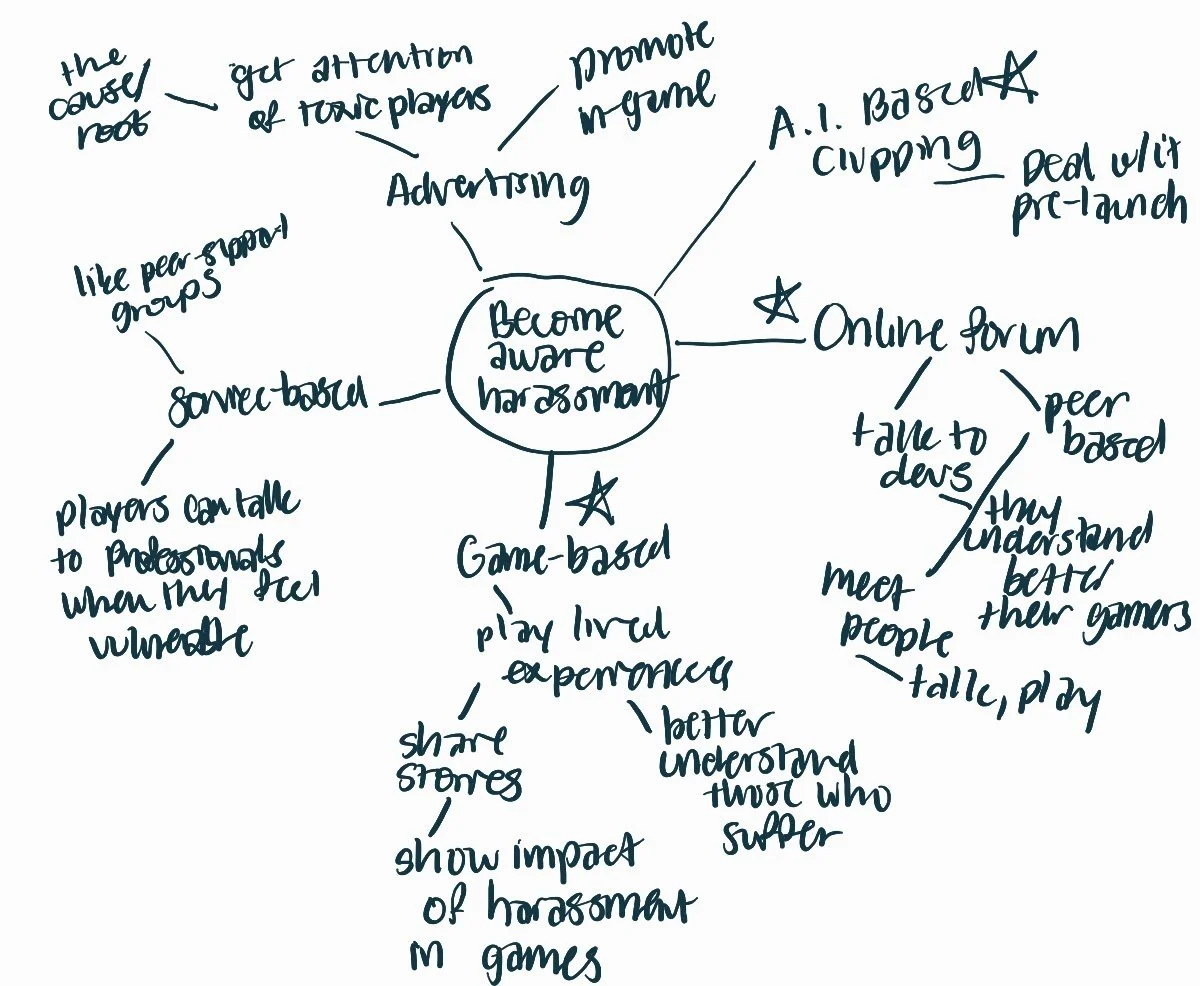 the
cause/
root
get attention
of toxic players
promote
in-game
Advertising
A.I. Based
Clipping
Deal w/it
pre-launch
like peer-support
groups
Become
aware
harassment
Online forum
service-based
talk to
devs
peer
based
they
understand
better
their gamers
meet
people
talk, play
players can talk
to professionals
when they feel
vulnerable
Game-based
play lived
experiences
share
stories
better
understand
those who
suffer
show impact
of harassment
in games